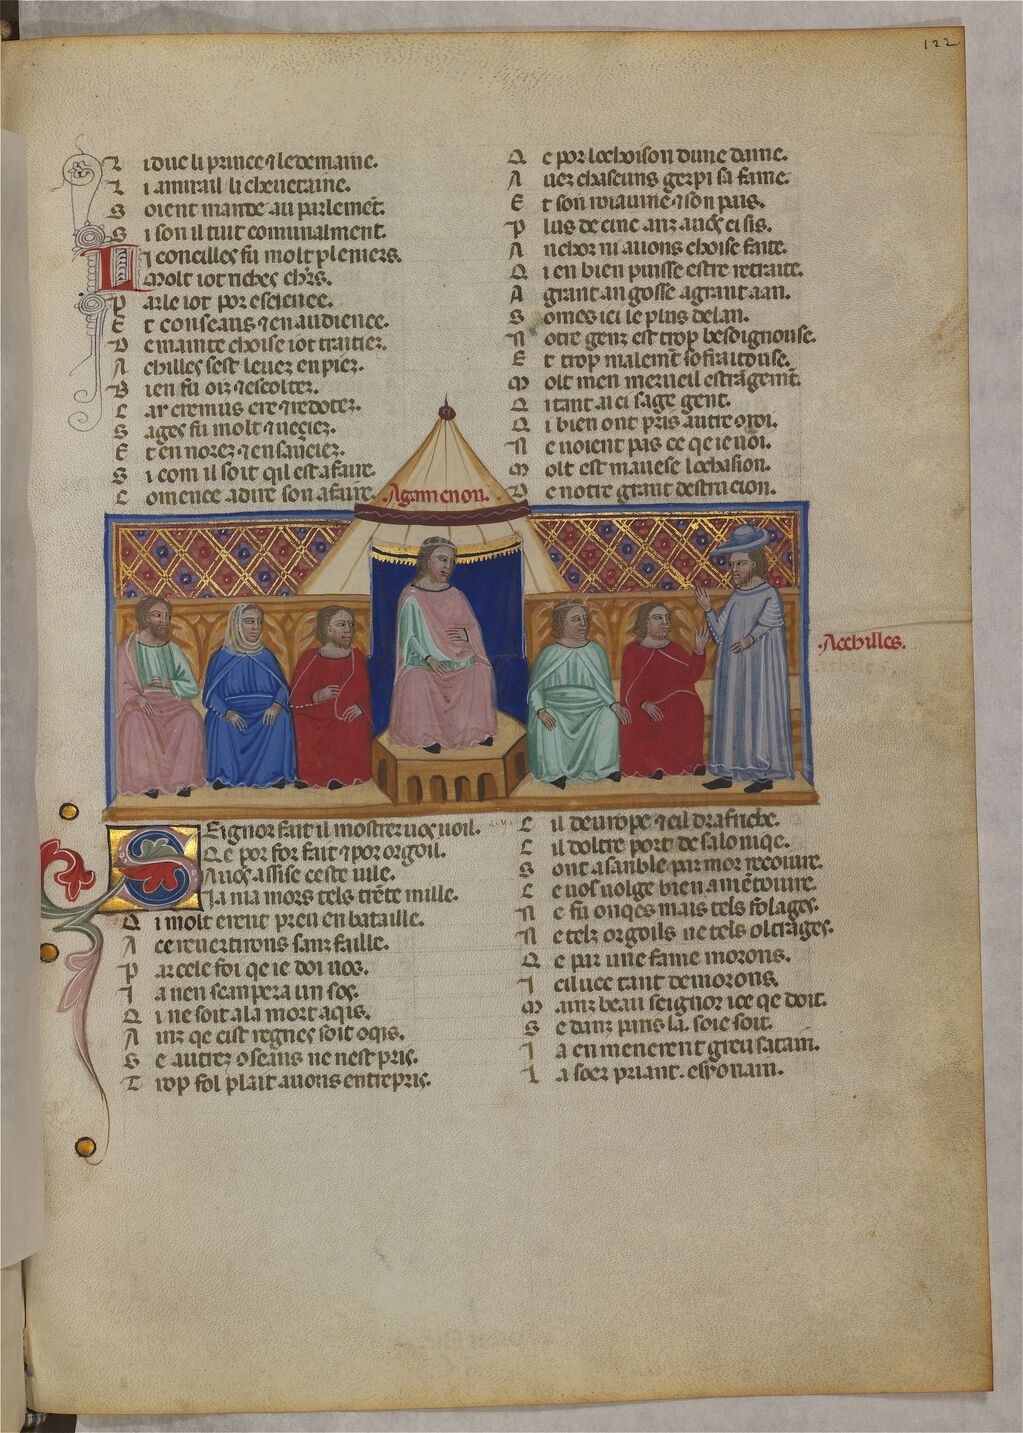 122
L i duc li prince ⁊ le demaine.
L i amirail li cheuetaine.
S oient mande au parlemēt.
S i son il tuit comunalment.
L i conceilles fu molt pleniers.
Molt iot riches chr̄s.
P arle iot por escience.
E t conseaus ⁊ en audience.
D e mainte choise iot traitier.
A chilles sest leuez en piez.
B ien fu oiz ⁊ escoltez.
C ar cremus ere ⁊ redotez.
S ages fu molt ⁊
E t en norez ⁊
S i com il soit qil est afaire.
C omence a dire son afaire.
Q e por lochoison dune dame.
A uez chascuns gerpi sa fame.
E t son roiaume ⁊ son pais.
P lus de cinc anz auōs ci sis.
A nchor ni auons choise faite.
Q i en bien puisse estre retraite.
A grant angosse a grant aan.
S omes ici le plus del an.
N otre genz est trop besoignouse.
E t trop malemēt sofraitouse.
M olt men merueil estrāgemēt.
Q itant ai ci sage gent.
Q i bien ont pris autre oroi.
N e uoient pas ce qe ie uoi.
M olt est mauese lochasion.
D e notre grant destrucion.
.Agamenon.
.Acchilles.
Seignor fait il mostrer uos uoil.
Qe por for fait ⁊ por orgoil.
Auōs assise ceste uile.
Ja nia mors tels trēte mille.
Q i molt erent preu en bataille.
A ce reuertirons sanz faille.
P ar cele foi qe ie doi uos.
I a nen scanpera un sos.
Q i ne soit a la mort aqis.
A inz qe cist regnes soit oqis.
S e autrez oseaus ne nest pris.
T rop fol plait auons entrepris.
C il deurope ⁊ cil dafriche.
C il doltre port de saloniqe.
S ont asanble par mor recoiure.
C e uos uolge bien amētoiure.
N e fu onqes mais tels folages.
N e telz orgoils ne tels oltrages.
Q e par une fame morons.
I ci luec tant demorons.
M ainz beau seignor ice qe doit.
S e danz paris la. soie soit.
I a en menerent greu satain.
L a soer priant. esionain.